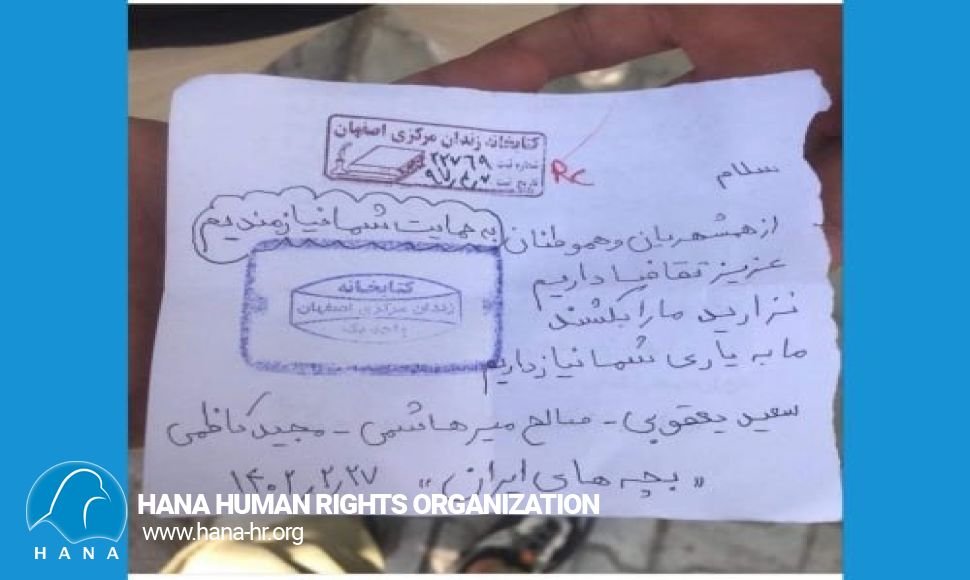 کتابخانه زندان مرکزی اصفهان
شماره ثبت ۲۲۷۶۹
تاریخ ثبت ۹۷٫۴٫۷
RC
سلام
از همشهریان و هموطنان به حمایت شما نیازمندیم
عزیز تقاضا داریم
نزارید ما را بکشند
ما به یاری شما نیاز داریم
کتابخانه
زندان مرکزی اصفهان
واحد یک
سعید یعقوبی - صالح میرهاشمی - مجید کاظمی
«بچه های ایران» ۱۴۰۲٫۲٫۲۷
HANA HUMAN RIGHTS ORGANIZATION
www.hana-hr.org
HANA